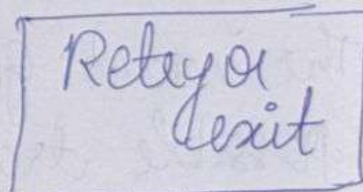 Retry or
exit